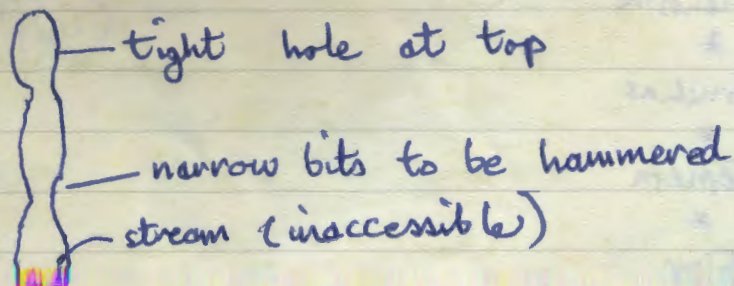 tight hole at top
narrow bits to be hammered
stream (inaccessible)